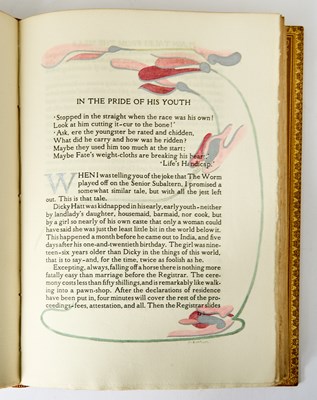 IN THE PRIDE OF HIS YOUTH
'Stopped in the straight when the race was his own!
Look at him cutting it-cur to the bone!'
'Ask, ere the youngster be rated and chidden,
What did he carry and how was he ridden?
Maybe they used him too much at the start;
Maybe Fate's weight-cloths are breaking his heart.'
'Life's Handicap.'
WHEN I was telling you of the joke that The Worm
played off on the Senior Subaltern, I promised a
somewhat similar tale, but with all the jest left
out. This is that tale.
Dicky Hatt was kidnapped in his early, early youth-neither
by landlady's daughter, housemaid, barmaid, nor cook, but
by a girl so nearly of his own caste that only a woman could
have said she was just the least little bit in the world below it.
This happened a month before he came out to India, and five
days after his one-and-twentieth birthday. The girl was nine-
teen-six years older than Dicky in the things of this world,
that is to say-and, for the time, twice as foolish as he.
Excepting, always, falling off a horse there is nothing more
fatally easy than marriage before the Registrar. The cere-
mony costs less than fifty shillings, and is remarkably like walk-
ing into a pawn-shop. After the declarations of residence
have been put in, four minutes will cover the rest of the pro-
ceedings-fees, attestation, and all. Then the Registrar slides